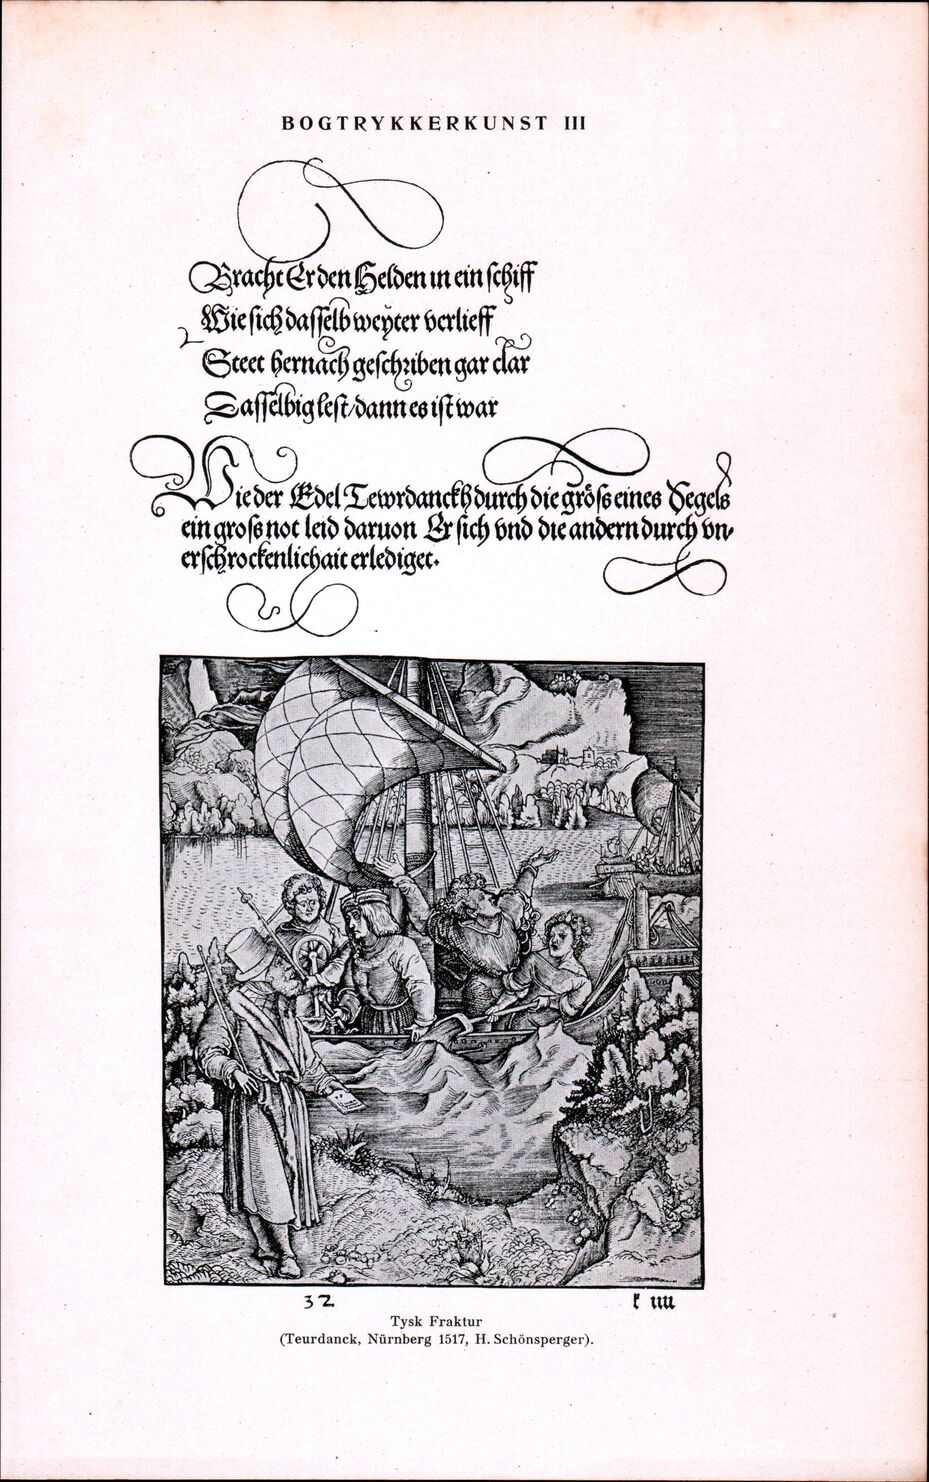 BOGTRYKKERKUNST III
Bracht Er den Helden in ein schiff
Wie sich dasselb weyter verlieff
Steet hernach geschriben gar clar
Dasselbig lest/dann es ist war
Wie der Edel Tewrdanckh durch die größ eines Segels
ein groß not leid daruon Er sich vnd die andern durch vn-
erschrockenlichait erlediget.
32 k iiii
Tysk Fraktur
(Teurdanck, Nürnberg 1517, H. Schönsperger).